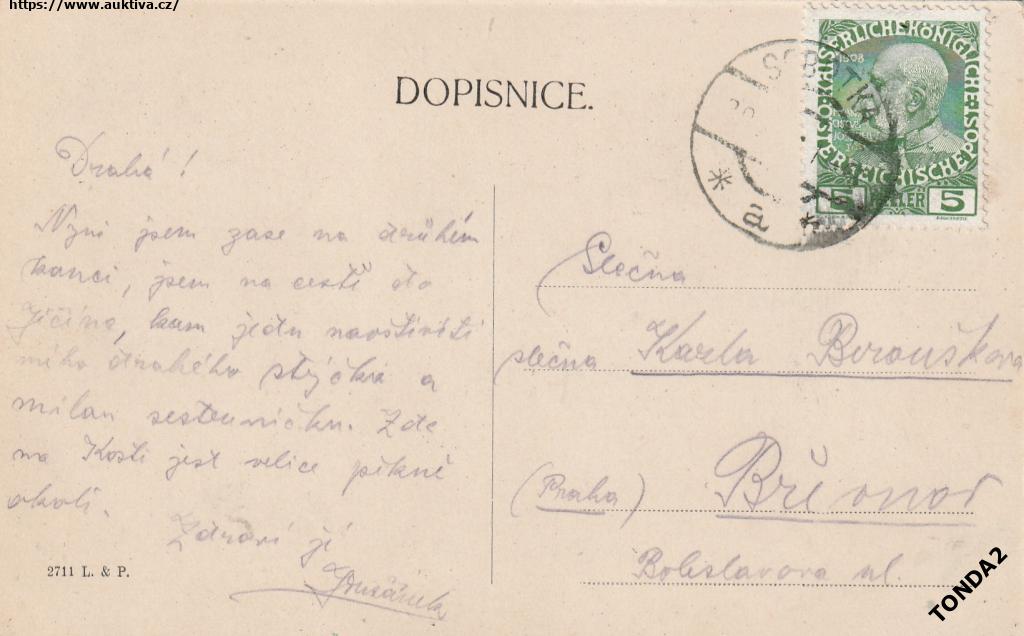 https://www.auktiva.cz/
DOPISNICE.
SOBOTKA
a
1908
5 HELLER 5
Drahá!
Nyní jsem zase na druhém
konci, jsem na cestě do
Jičína, kam jedu navštíviti
mého drahého strýčka a
milou sestřeničku. Zde
na Kosti jest velice pěkné
okolí.
Zdraví jí
2711 L. & P.
Slečna
slečna Karla Beroušková
(Praha) Břevnov
Boleslavova ul.
TONDA2